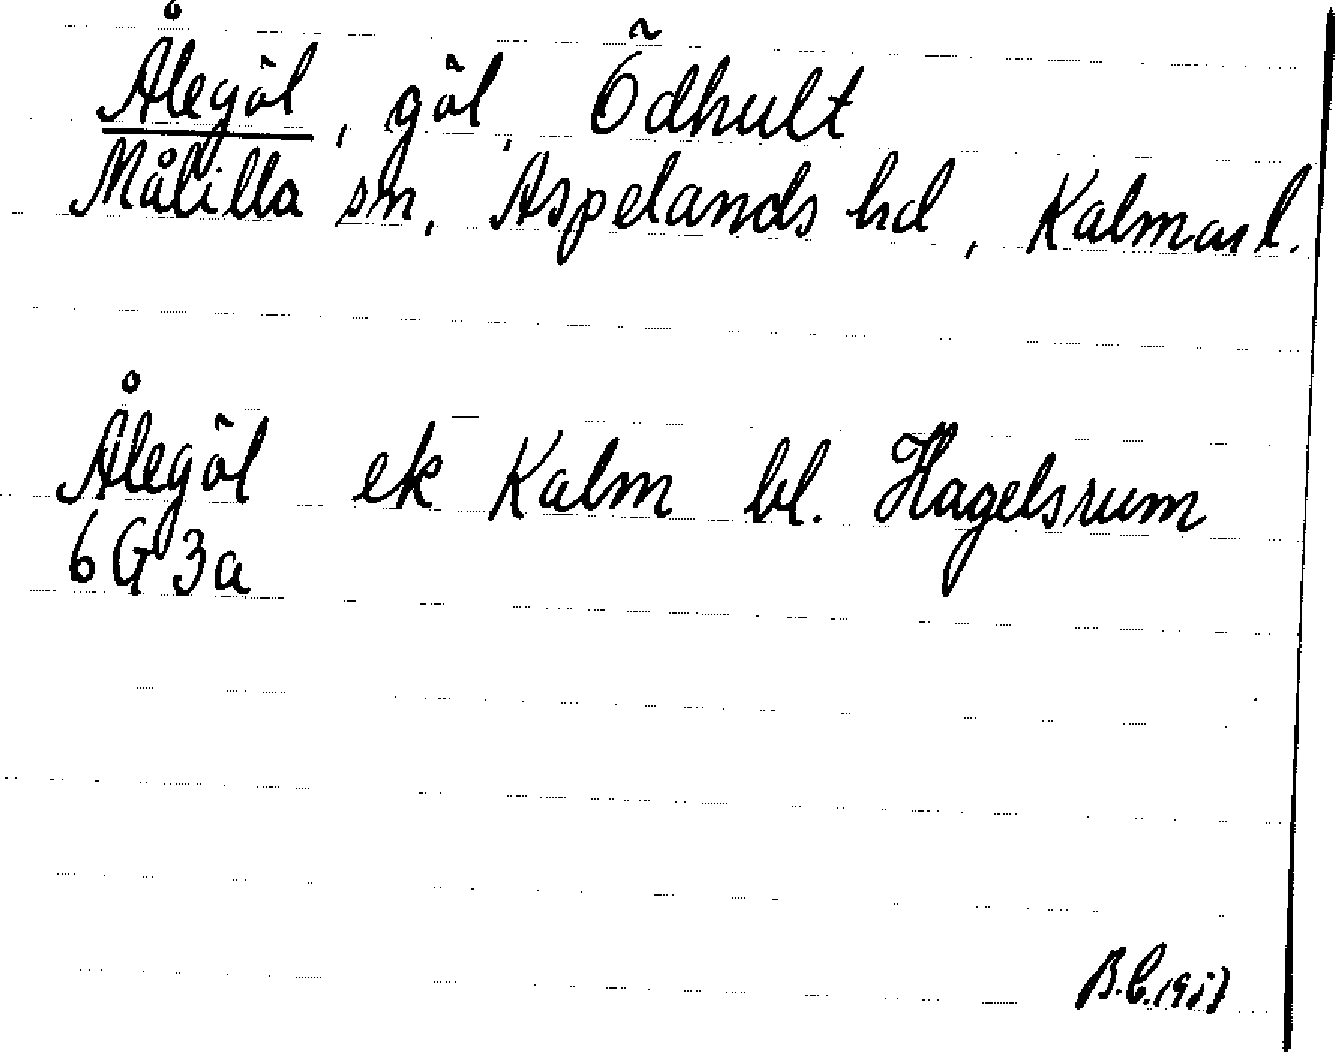 Ålegöl, göl, Ödhult
Målilla sn, Aspelands hd, Kalmar l.
Ålegöl ek Kalm bl. Hagelsrum
6G3a